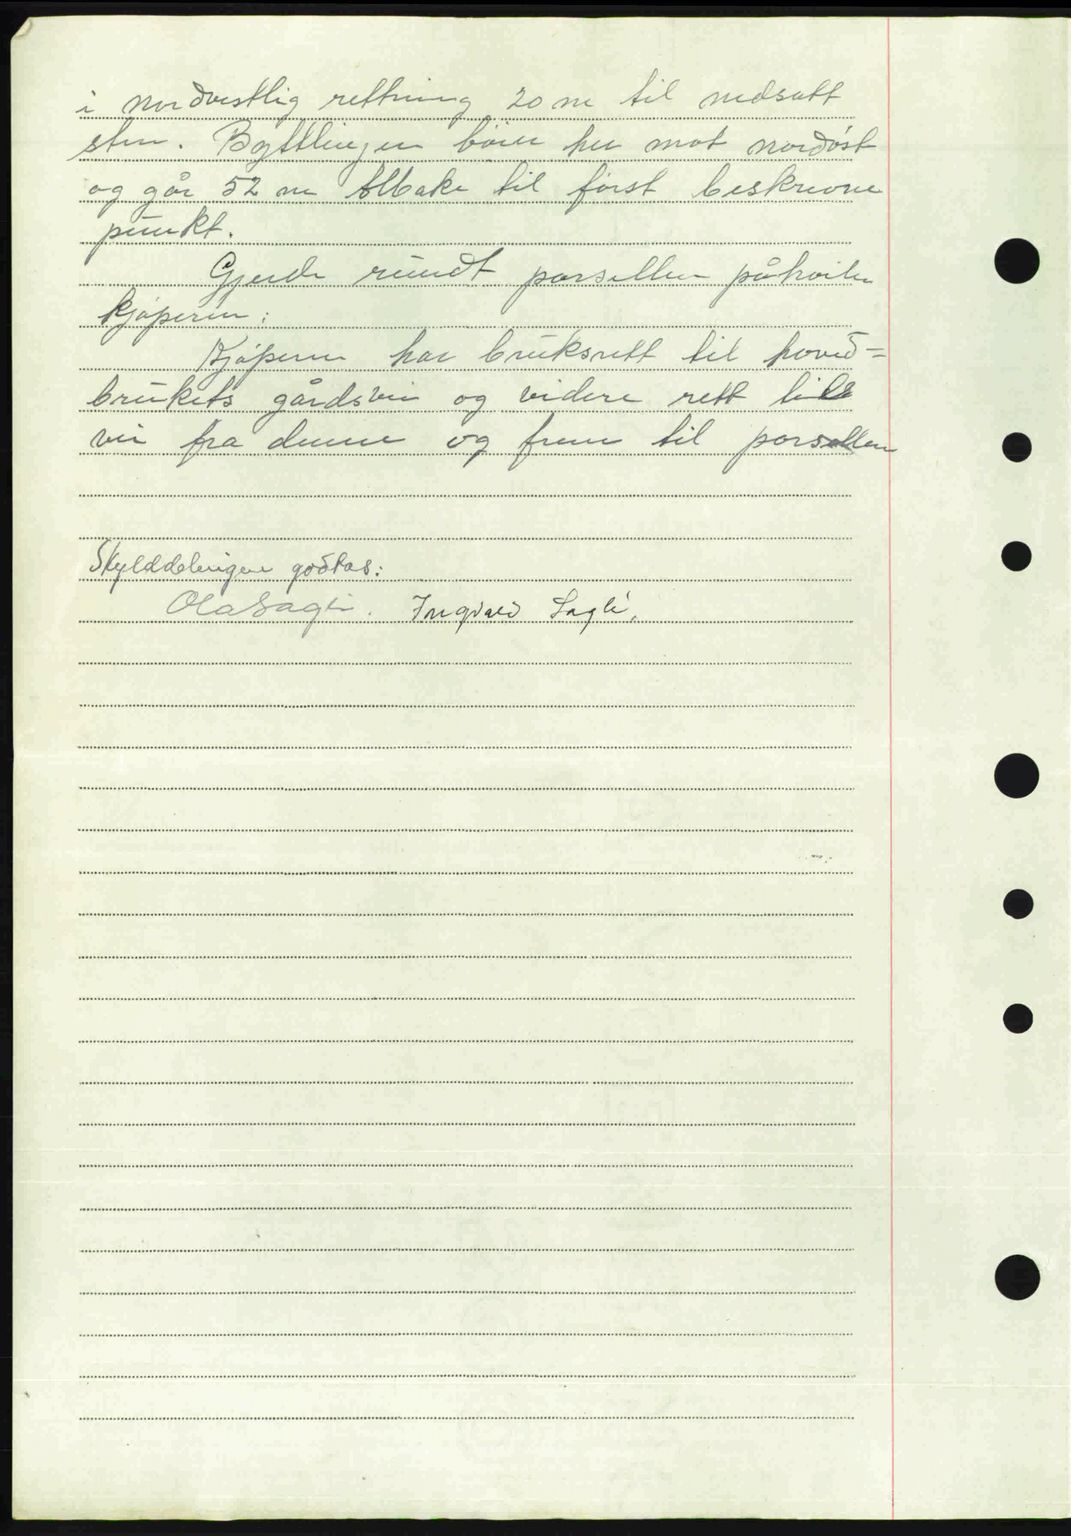 i nordvestlig rettning 20 m til nedsatt
sten. Byttlinjen böier her mot nordöst
og går 52 m tilbake til först beskrevne
punkt.
Gjerde rundt parsellen påhviler
kjöperen:
Kjöperen har bruksrett til hoved=
brukets gårdsvei og videre rett til
vei fra denne og frem til parsellen
Skylddelingen godtas:
Ola Sagli. Ingvald Sagli.